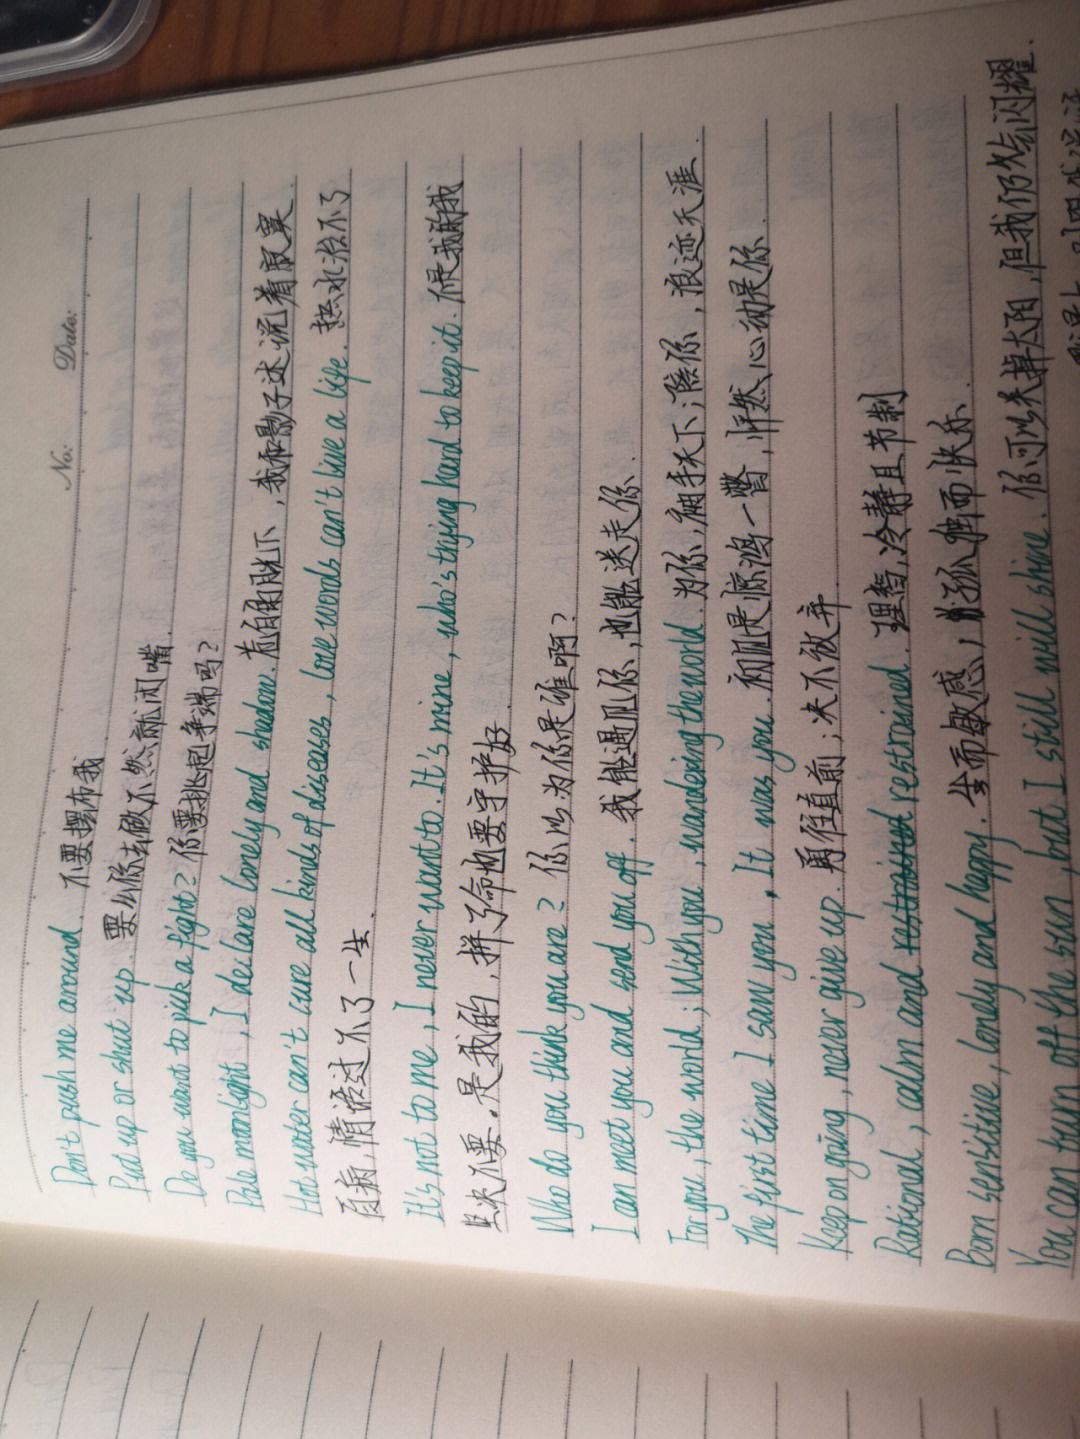 No: Date:
Don't push me around. 不要摆布我
Put up or shut up. 要么你去做不然就闭嘴.
Do you want to pick a fight? 你要挑起争端吗?
Pale moonlight, I declare lonely and shadow. 苍白月光下,我和影子述说着寂寞.
Hot water can't cure all kinds of diseases, love words can't live a life. 热水治不了
百病,情话过不了一生.
It's not to me, I never want to. It's mine, who's trying hard to keep it. 不是我的我
坚决不要.是我的,拼了命也要守护好.
Who do you think you are? 你以为你是谁啊?
I can meet you and send you off. 我能遇见你,也能送走你.
For you, the world; With you, wandering the world. 为你,翻手天下;像你,浪迹天涯.
The first time I saw you, It was you. 初见是惊鸿一瞥,怦然心动是你.
Keep on going, never give up. 勇往直前;决不放弃
Rational, calm and restrained. 理智,冷静且节制
Born sensitive, lonely and happy. 生而敏感,孤独而快乐.
You can turn off the sun, but I still will shine. 你可以关掉太阳,但我仍然闪耀.